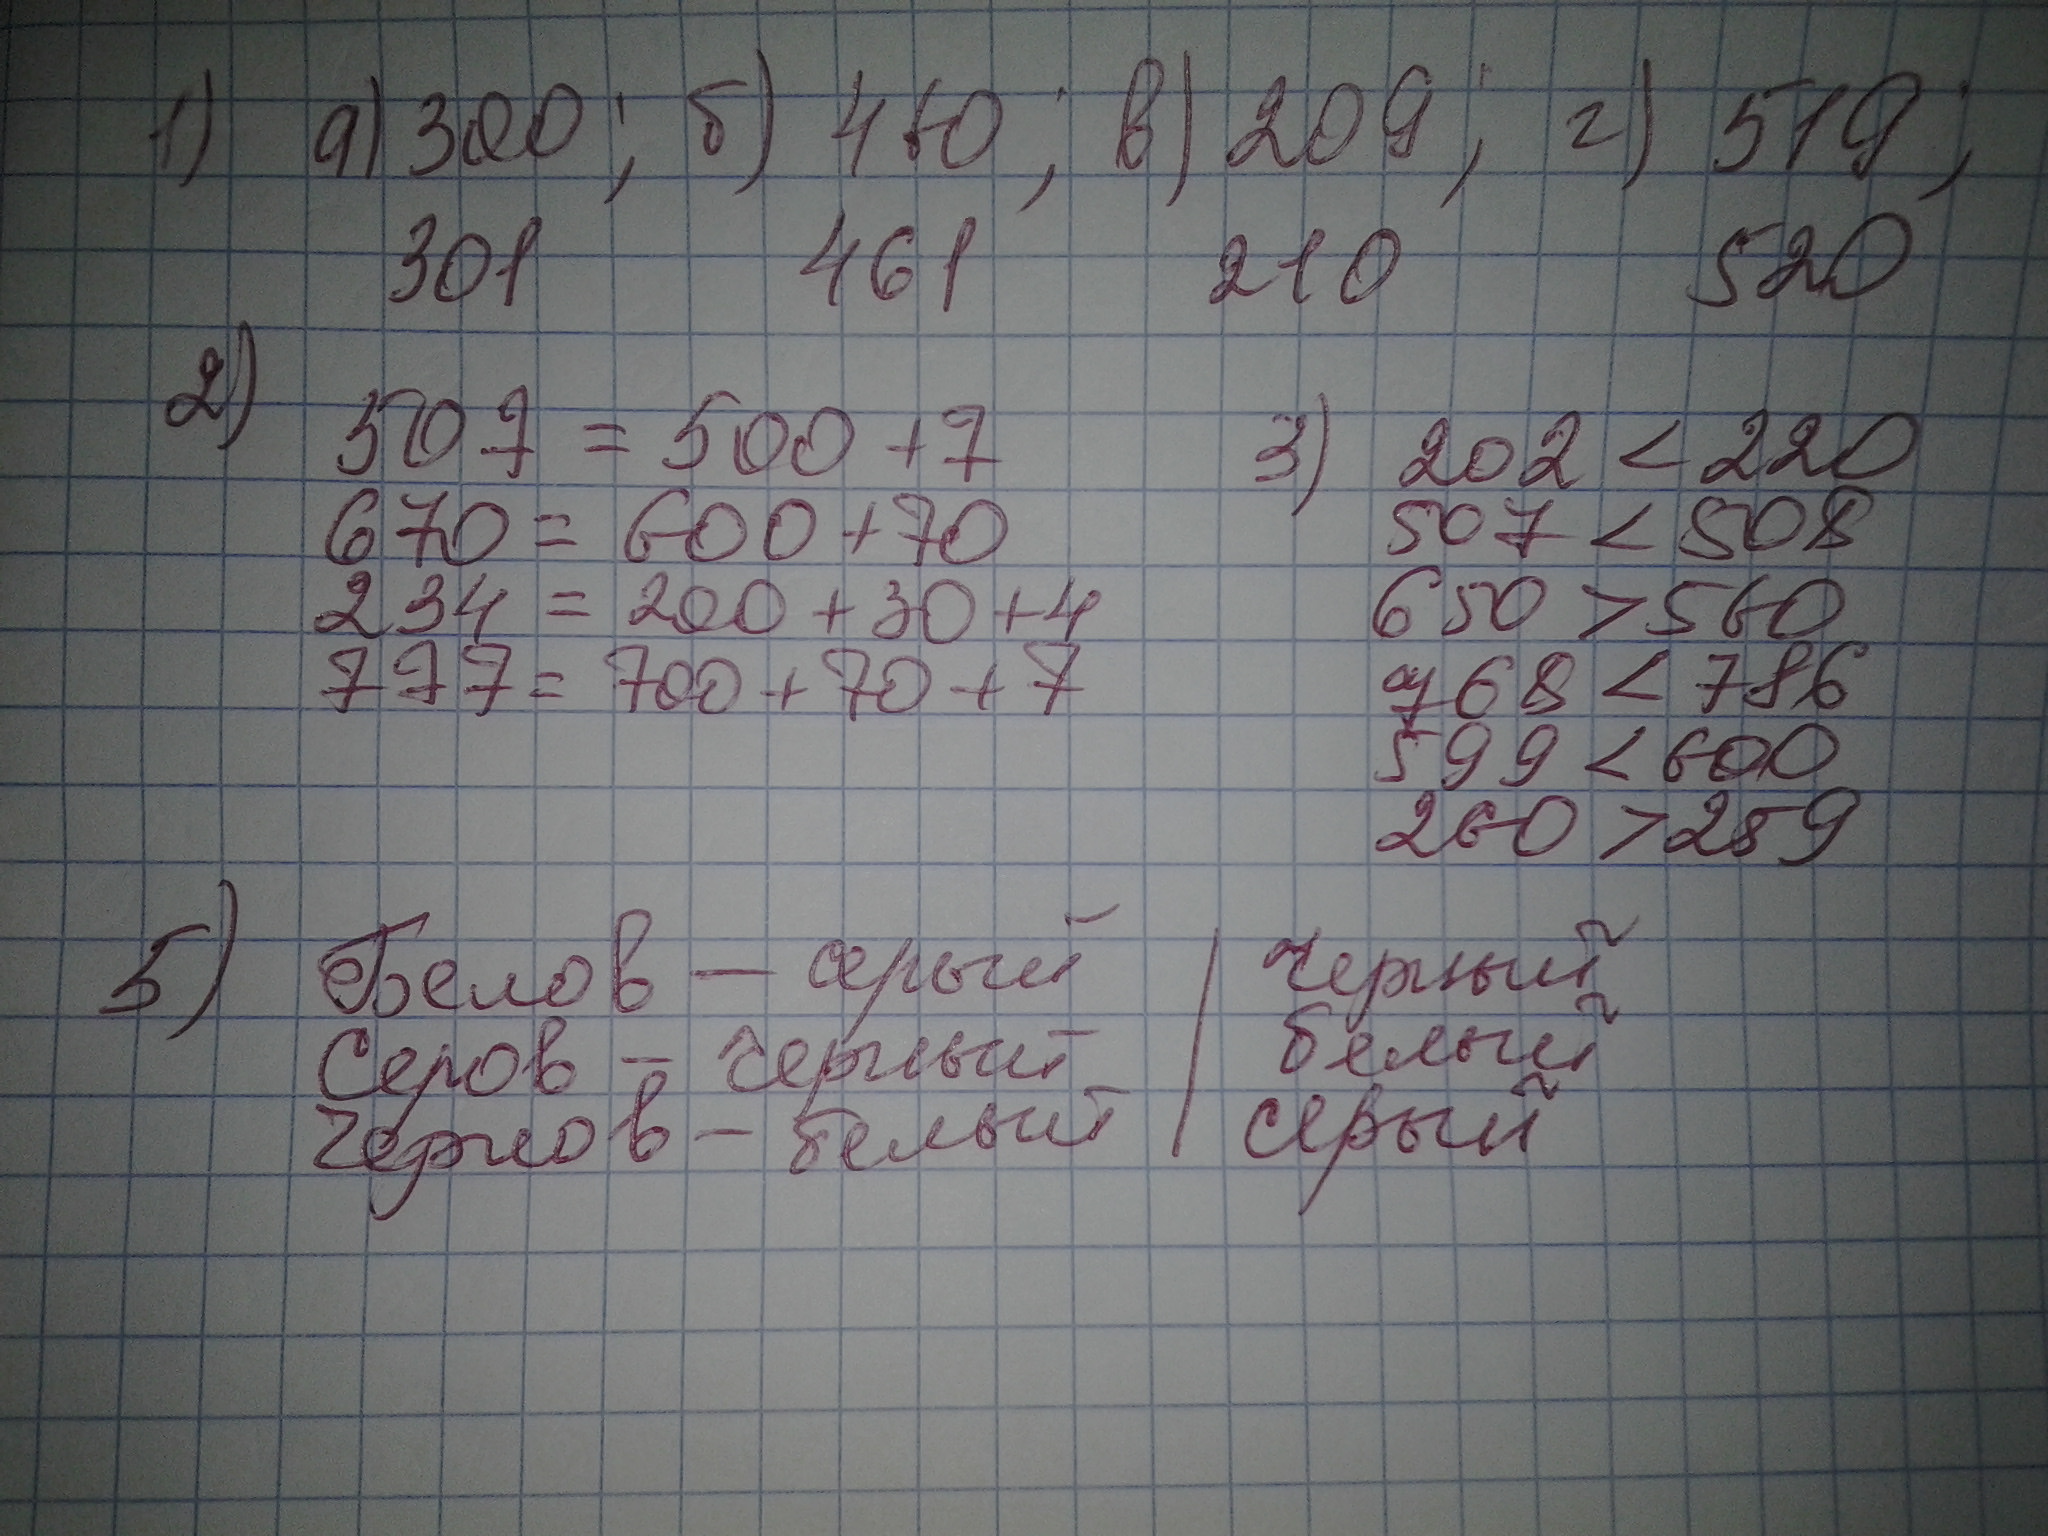 1) а) 300; б) 460; в) 209; г) 519;
301 461 210 520
2)
507 = 500 + 7
670 = 600 + 70
234 = 200 + 30 + 4
777 = 700 + 70 + 7
3) 202 < 220
507 < 508
650 > 560
768 < 786
599 < 600
260 > 259
5) Белов – серый / черный
Серов – черный / белый
Чернов – белый / серый